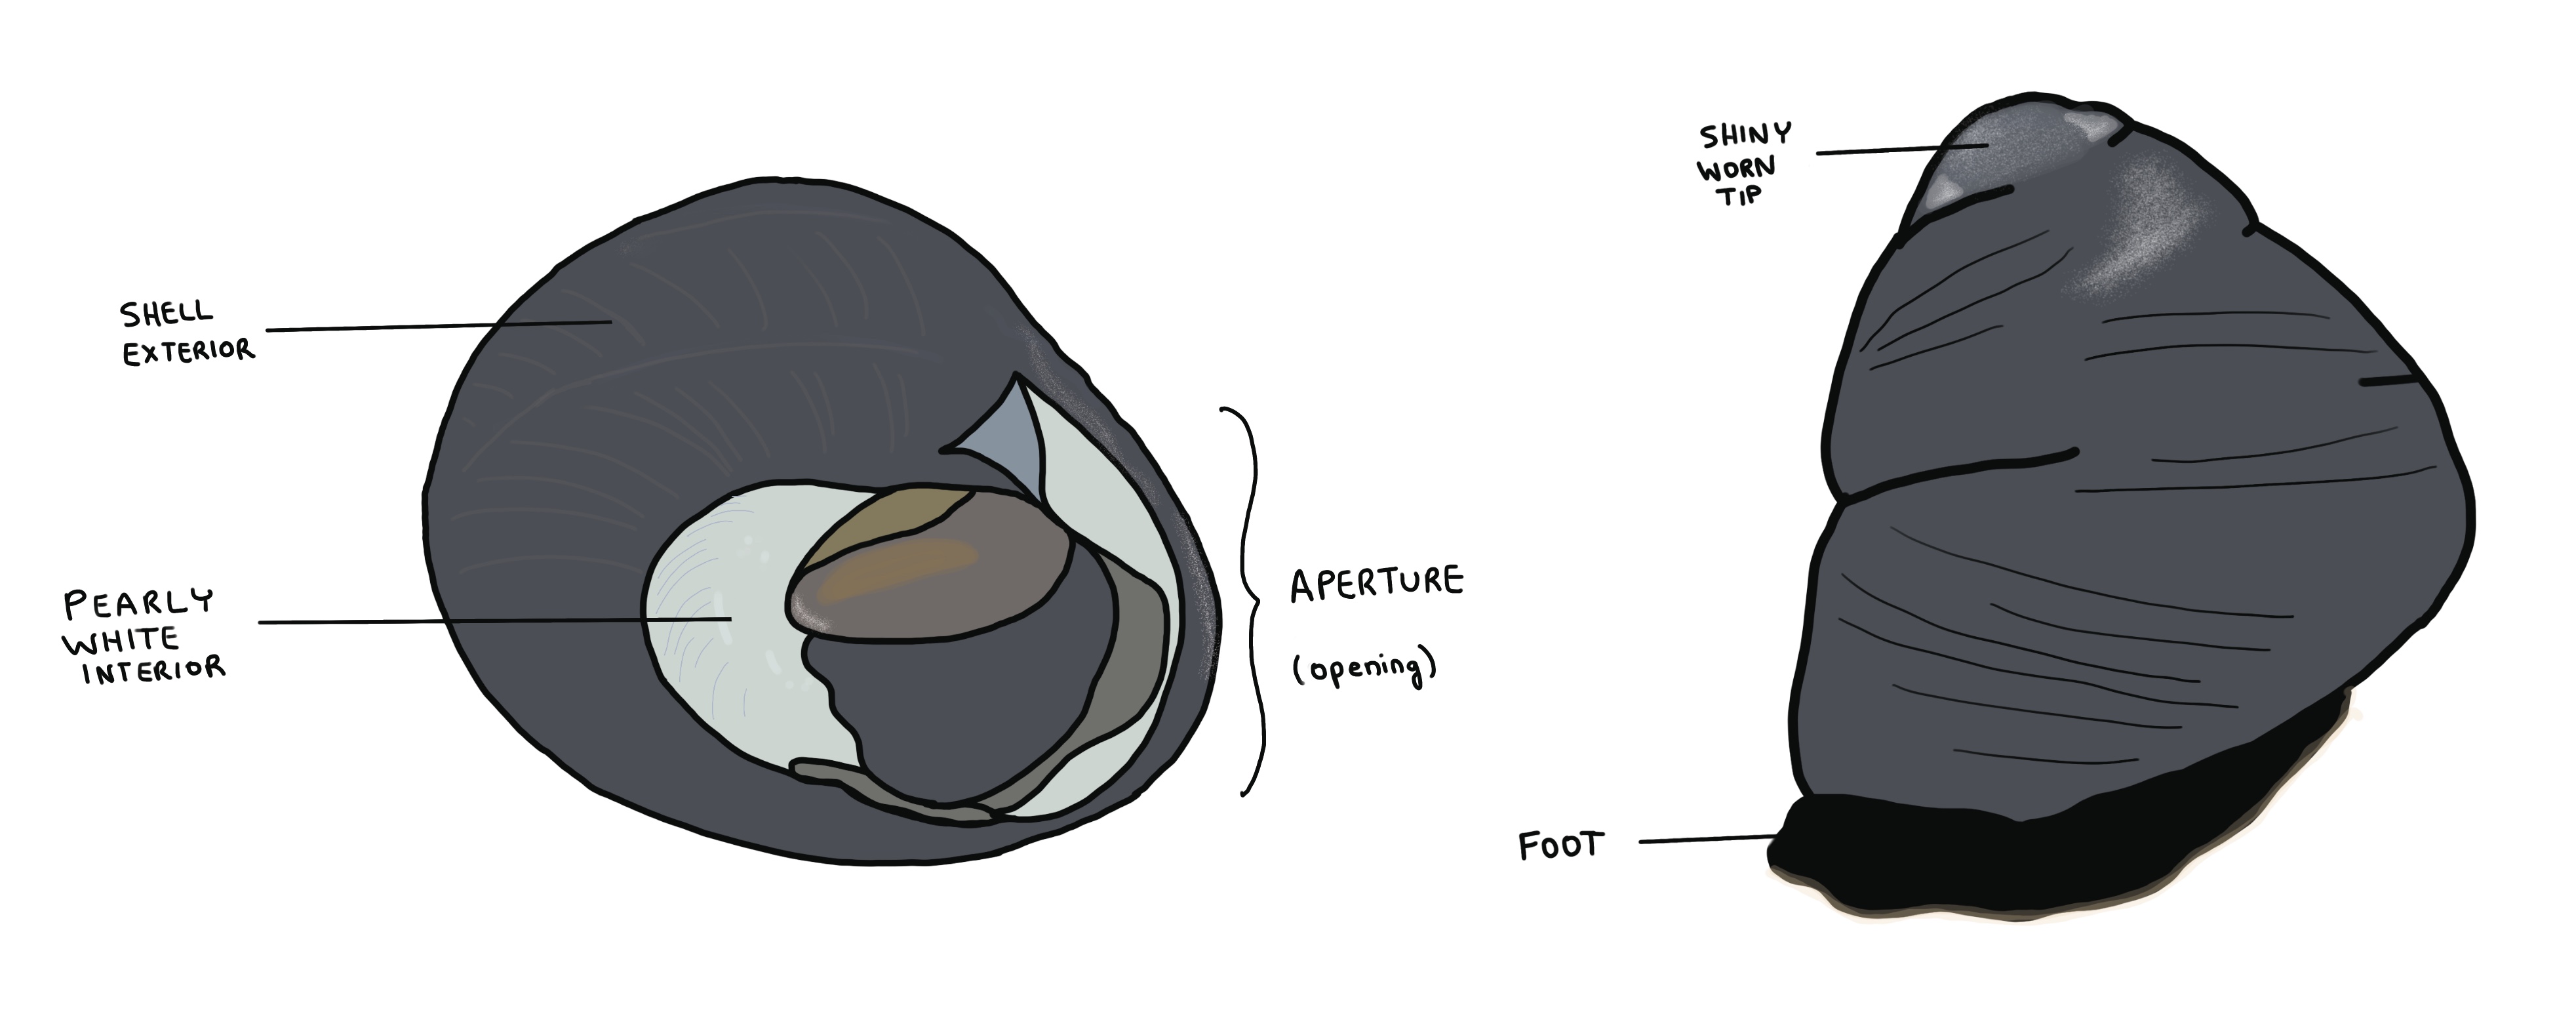 SHELL
EXTERIOR
PEARLY
WHITE
INTERIOR
APERTURE
(opening)
SHINY
WORN
TIP
FOOT